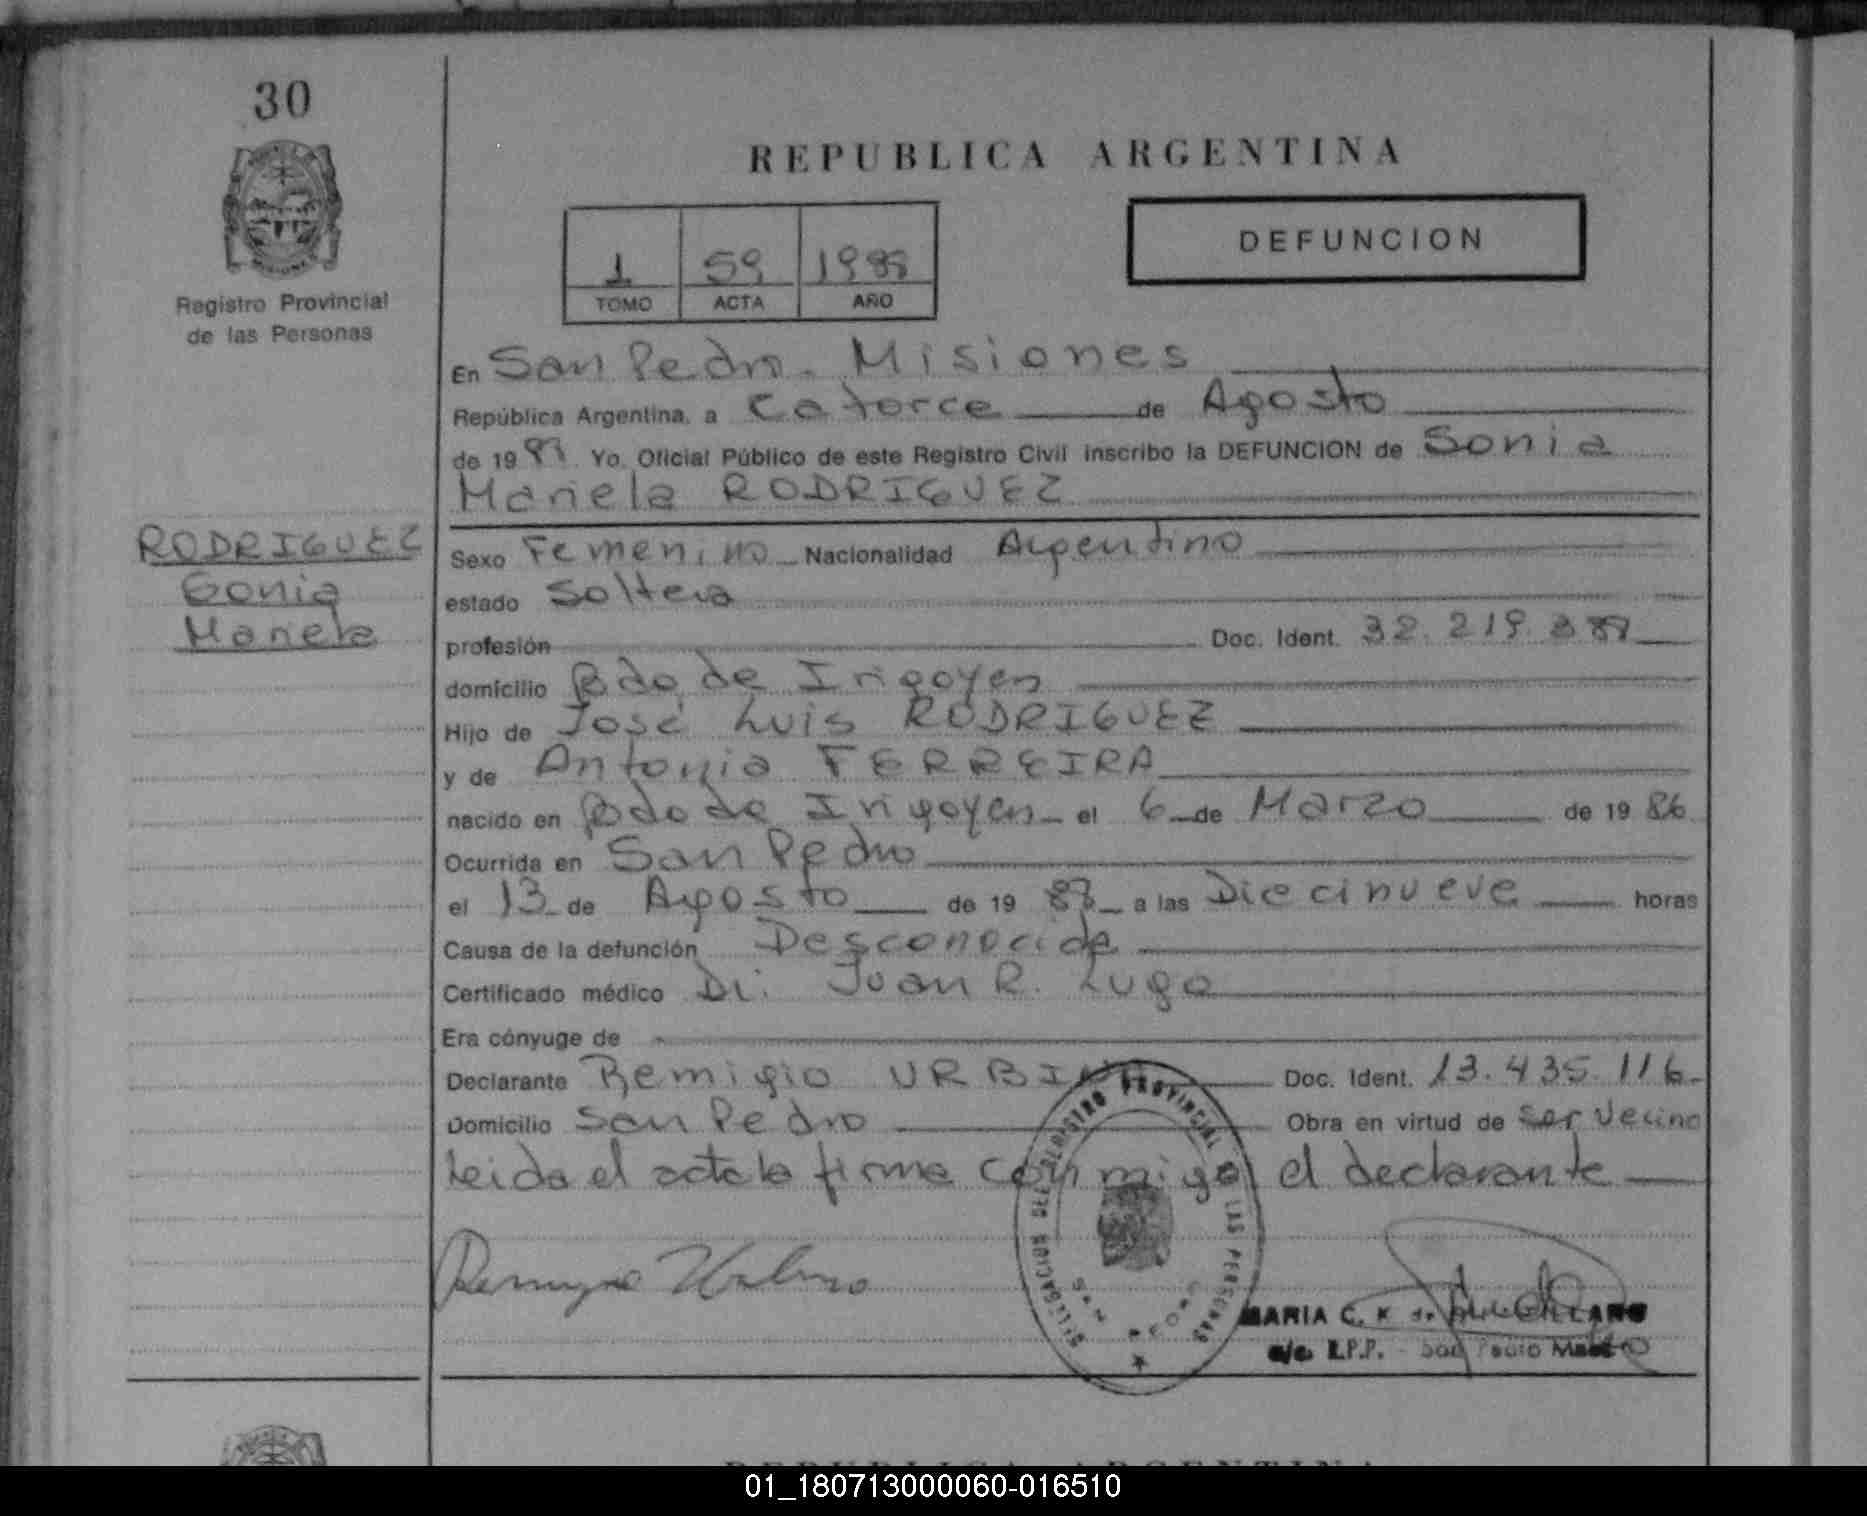 30
Registro Provincial
de las Personas
REPUBLICA ARGENTINA
1 59 1988
TOMO ACTA AÑO
DEFUNCION
En San Pedro - Misiones
República Argentina, a Catorce de Agosto
de 19 Yo, Oficial Público de este Registro Civil inscribo la DEFUNCION de Sonia
Mariela RODRIGUEZ
RODRIGUEZ
Sonia
Mariela
Sexo Femenino Nacionalidad Argentino
estado Soltera
profesión Doc. Ident. 32.219.
domicilio Bdo de Irigoyen
Hijo de José Luis RODRIGUEZ
y de Antonia FERREIRA
nacido en Bdo de Irigoyen el 6 de Marzo de 19 86
Ocurrida en San Pedro
el 13 de Agosto de 19 88 a las Diecinueve horas
Causa de la defunción Desconocida
Certificado médico Dr. Juan R. Lugo
Era cónyuge de
Declarante Remigio URBINO Doc. Ident. 13.435.116
Domicilio San Pedro Obra en virtud de ser vecino
Leida el acta la firma conmigo el declarante
DELEGACION DEL REGISTRO PROVINCIAL DE LAS PERSONAS
SAN PEDRO
MARIA C. K. de
a/c. R.P.P. - San Pedro
REPUBLICA ARGENTINA
01_180713000060-016510